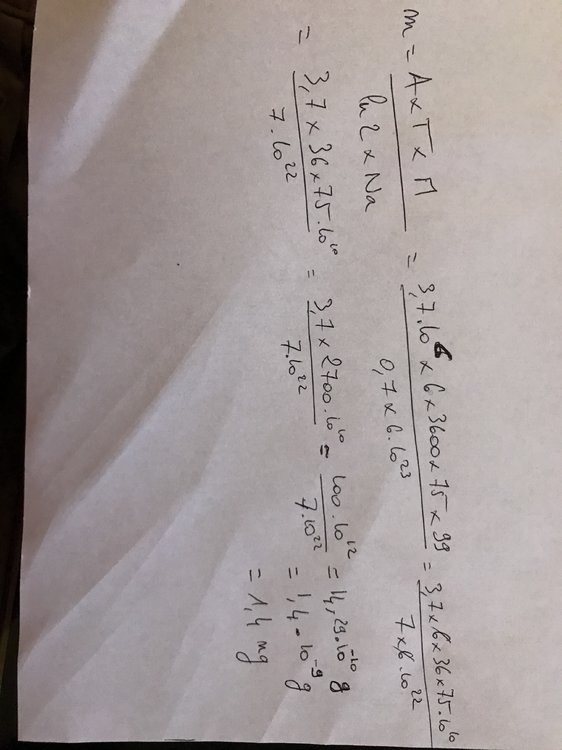 m = A x T x M / ln 2 x Na = 3,7.10^6 x 6 x 3600 x 75 x 99 / 0,7 x 6.10^23 = 3,7 x 6 x 36 x 75.10^10 / 7 x 6.10^22
= 3,7 x 36 x 75.10^10 / 7.10^22 = 3,7 x 2700.10^10 / 7.10^22 = 100.10^12 / 7.10^22 = 14,29.10^-10 g
= 1,4.10^-9 g
= 1,4 mg